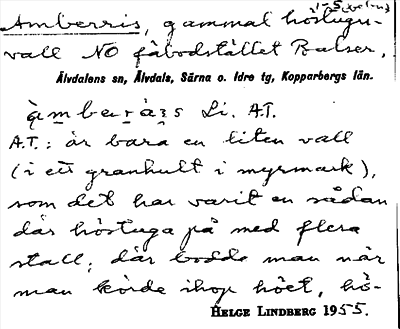 Amberris, gammal höstugu-
vall NO fäbodstället Balser,
Älvdalens sn, Älvdals, Särna o. Idre tg, Kopparbergs län.
Li. A.T.
A.T.: är bara en liten vall
(i ett granhult i myrmark),
som det har varit en sådan
där höstuga på med flera
stall; där bodde man når
man körde ihop höet, hö-
HELGE LINDBERG 1955.